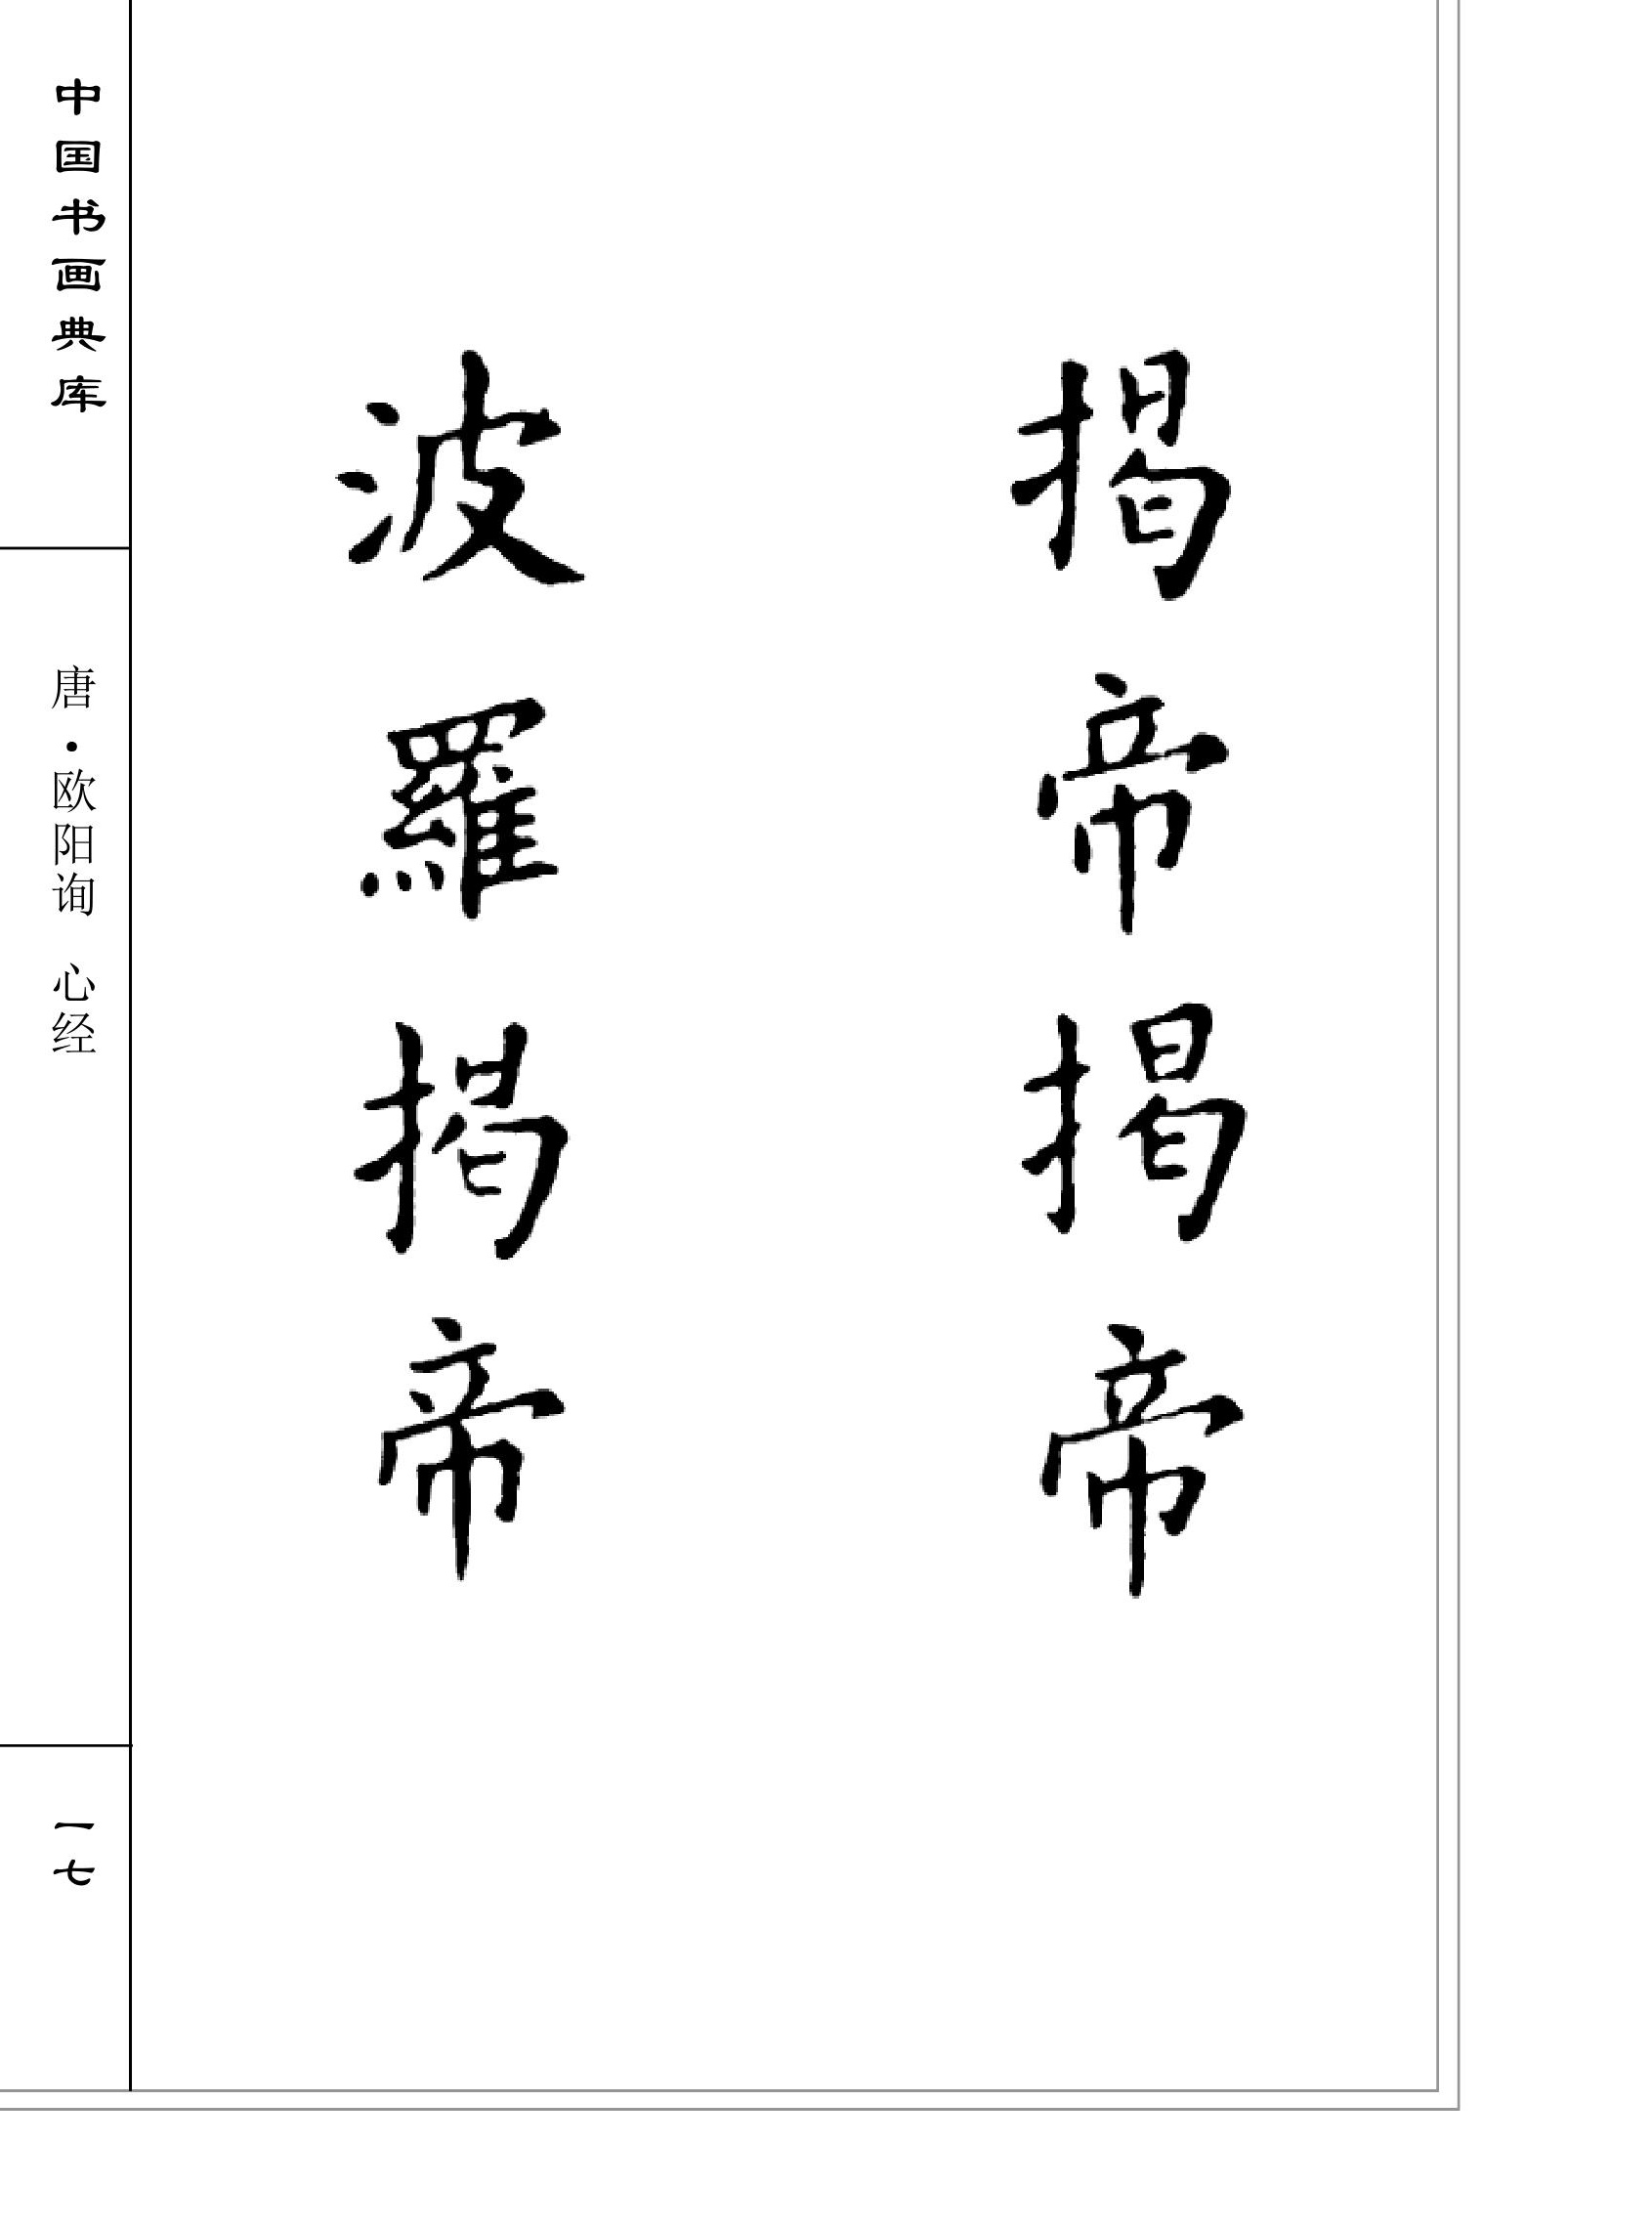 揭帝揭帝
波羅揭帝
中国书画典库
唐·欧阳询 心经
一七